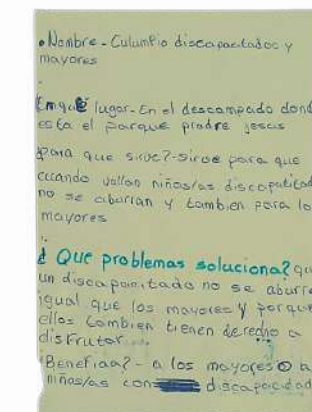 • Nombre - Culumpio discapacitados y
mayores
En que lugar - En el descampado dond
esta el parque pradre jesus
para que sirve? - sirve para que
cuando vallan niños/as discapatitad
no se aburran y tambien para lo
mayores
¿ Que problemas soluciona? qu
un discapacitado no se aburre
igual que los mayores y porque
ellos tambien tienen derecho a
disfrutar
Benefiaa? - a los mayores o a
niñas/as con discapacidad